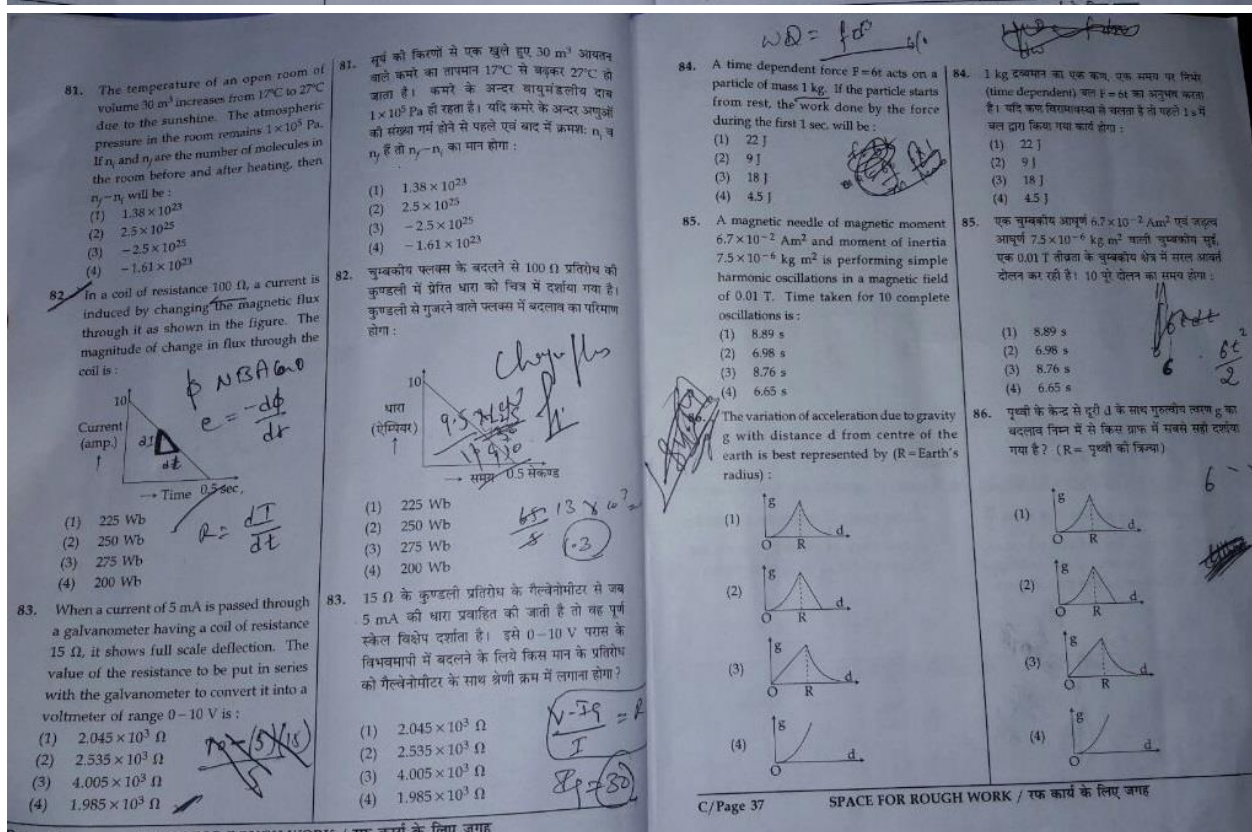 81. The temperature of an open room of
volume 30 m³ increases from 17°C to 27°C
due to the sunshine. The atmospheric
pressure in the room remains 1×10⁵ Pa.
If nᵢ and n_f are the number of molecules in
the room before and after heating, then
n_f−nᵢ will be :
(1) 1.38×10²³
(2) 2.5×10²⁵
(3) −2.5×10²⁵
(4) −1.61×10²³
82. In a coil of resistance 100 Ω, a current is
induced by changing the magnetic flux
through it as shown in the figure. The
magnitude of change in flux through the
coil is :
10
Current
(amp.)
dI
dt
→ Time 0.5 sec,
e = −dϕ/dt
R = dI/dt
(1) 225 Wb
(2) 250 Wb
(3) 275 Wb
(4) 200 Wb
83. When a current of 5 mA is passed through
a galvanometer having a coil of resistance
15 Ω, it shows full scale deflection. The
value of the resistance to be put in series
with the galvanometer to convert it into a
voltmeter of range 0−10 V is :
(1) 2.045×10³ Ω
(2) 2.535×10³ Ω
(3) 4.005×10³ Ω
(4) 1.985×10³ Ω
81. सूर्य की किरणों से एक खुले हुए 30 m³ आयतन
वाले कमरे का तापमान 17°C से बढ़कर 27°C हो
जाता है। कमरे के अन्दर वायुमंडलीय दाब
1×10⁵ Pa ही रहता है। यदि कमरे के अन्दर अणुओं
की संख्या गर्म होने से पहले एवं बाद में क्रमश: nᵢ व
n_f हैं तो n_f−nᵢ का मान होगा :
(1) 1.38×10²³
(2) 2.5×10²⁵
(3) −2.5×10²⁵
(4) −1.61×10²³
82. चुम्बकीय फ्लक्स के बदलने से 100 Ω प्रतिरोध की
कुण्डली में प्रेरित धारा को चित्र में दर्शाया गया है।
कुण्डली से गुजरने वाले फ्लक्स में बदलाव का परिमाण
होगा :
10
धारा
(ऐम्पियर)
→ समय 0.5 सेकण्ड
(1) 225 Wb
(2) 250 Wb
(3) 275 Wb
(4) 200 Wb
83. 15 Ω के कुण्डली प्रतिरोध के गैल्वेनोमीटर से जब
5 mA की धारा प्रवाहित की जाती है तो वह पूर्ण
स्केल विक्षेप दर्शाता है। इसे 0−10 V परास के
विभवमापी में बदलने के लिये किस मान के प्रतिरोध
को गैल्वेनोमीटर के साथ श्रेणी क्रम में लगाना होगा?
(1) 2.045×10³ Ω
(2) 2.535×10³ Ω
(3) 4.005×10³ Ω
(4) 1.985×10³ Ω
84. A time dependent force F=6t acts on a
particle of mass 1 kg. If the particle starts
from rest, the work done by the force
during the first 1 sec. will be :
(1) 22 J
(2) 9 J
(3) 18 J
(4) 4.5 J
85. A magnetic needle of magnetic moment
6.7×10⁻² Am² and moment of inertia
7.5×10⁻⁶ kg m² is performing simple
harmonic oscillations in a magnetic field
of 0.01 T. Time taken for 10 complete
oscillations is :
(1) 8.89 s
(2) 6.98 s
(3) 8.76 s
(4) 6.65 s
86. The variation of acceleration due to gravity
g with distance d from centre of the
earth is best represented by (R=Earth's
radius) :
(1) g O R d
(2) g O R d
(3) g O R d
(4) g O d
C/Page 37
84. 1 kg द्रव्यमान का एक कण, एक समय पर निर्भर
(time dependent) बल F=6t का अनुभव करता
है। यदि कण विरामावस्था से चलता है तो पहले 1 s में
बल द्वारा किया गया कार्य होगा :
(1) 22 J
(2) 9 J
(3) 18 J
(4) 4.5 J
85. एक चुम्बकीय आघूर्ण 6.7×10⁻² Am² एवं जड़त्व
आघूर्ण 7.5×10⁻⁶ kg m² वाली चुम्बकीय सुई,
एक 0.01 T तीव्रता के चुम्बकीय क्षेत्र में सरल आवर्त
दोलन कर रही है। 10 पूरे दोलन का समय होगा :
(1) 8.89 s
(2) 6.98 s
(3) 8.76 s
(4) 6.65 s
6t²/2
86. पृथ्वी के केन्द्र से दूरी d के साथ गुरुत्वीय त्वरण g का
बदलाव निम्न में से किस ग्राफ में सबसे सही दर्शाया
गया है? (R= पृथ्वी की त्रिज्या)
(1) g O R d
(2) g O R d
(3) g O R d
(4) g O d
SPACE FOR ROUGH WORK / रफ कार्य के लिए जगह